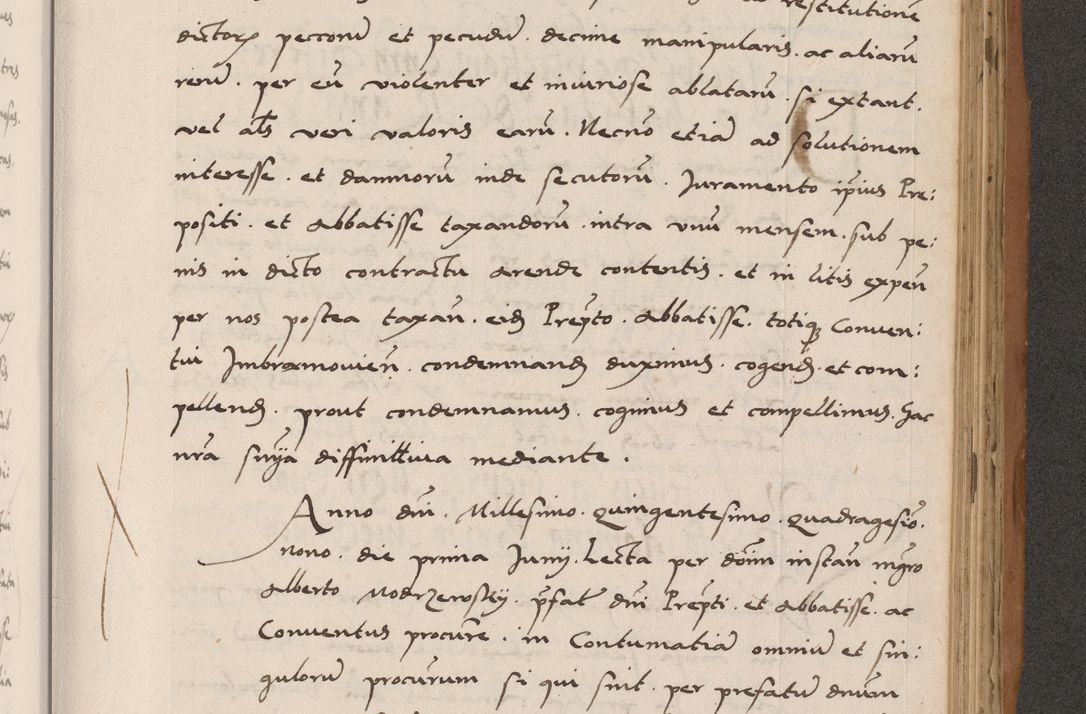 restitutionē
dictorꝝ pecconū et pecudū. decime manipularis. ac aliarū
rerū. per eū violenter et iniuriose ablatarū. si extant.
vel als veri valoris earū. Necnō etiā ad solutionem
interesse. et damnorū inde secutorū. Juramento ip̄ius Pre:
positi. et Abbatisse taxandorū. intra vnū mensem. sub pe:
nis in dicto contractu Arende contentis. et in litis expen̄
per nos postea taxan̄. eid Prep̄to. Abbatisse. totiq Conuen:
tui Imbramouien̄. condemnand duximus. cogend. et com:
pellend. prout condemnamus. cogimus et compellimus. hac
nr̄a sn̄ya diffinitiua mediante.
Anno dn̄i. Millesimo. quingentesimo. quadragesīo.
nono. die prima Junij. Lecta per dōim instan̄ mgr̄o
Alberto Modrzewskij. p̄fat dn̄i Prep̄ti. et Abbatisse. ac
Conuentus procur̄e. in Contumatiā omniū et sin:
gulorū procur̄um si qui sint. per prefatū dnum